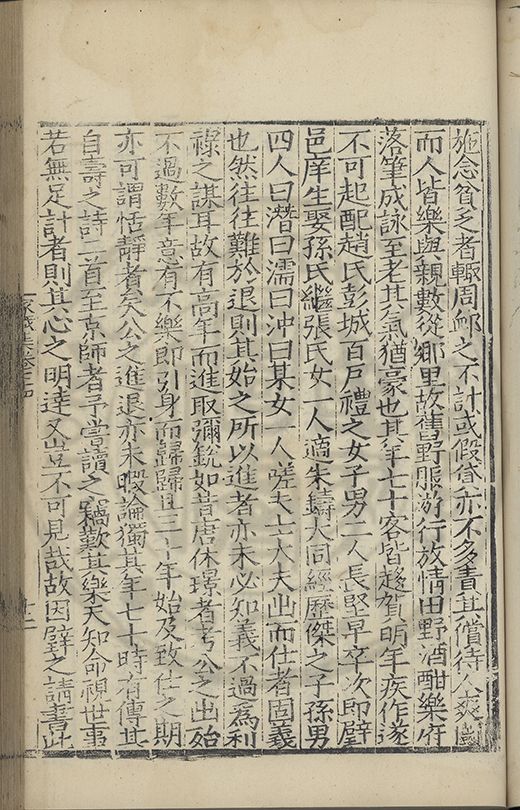 施念貧乏者輒周卹之不計或假貸亦不多責其償待人爽闓
而人皆樂與親數從鄉里故舊野服游行放情田野酒酣樂府
落筆成詠至老其氣猶豪也其年七十客皆趨賀明年疾作遂
不可起配趙氏彭城百戶禮之女子男二人長堅早卒次即璧
邑庠生娶孫氏繼張氏女一人適朱鑄大同經歷傑之子孫男
四人曰潛曰濡曰沖曰某女一人嗟夫士大夫出而仕者固義
也然往往難於退則其始之所以進者亦未必知義不過為利
祿之謀耳故有高年而進取彌銳如昔唐休璟者考公之出始
不過數年意有不樂即引身而歸歸且三十年始及致仕之期
亦可謂恬靜者矣公之進退亦未暇論獨其年七十時有傳其
自壽之詩二首至京師者予嘗讀之竊歎其樂天知命視世事
若無足計者則其心之明達又豈不可見哉故因璧之請書此
家藏集卷
十二